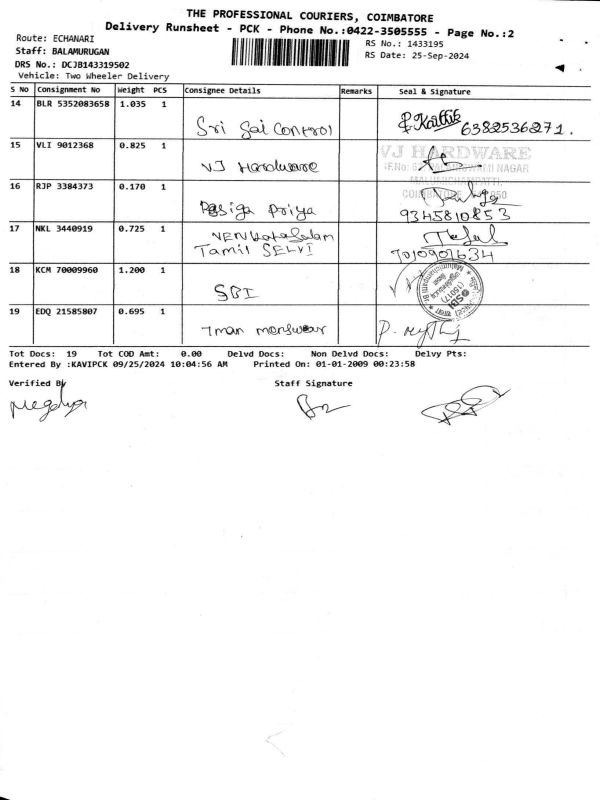 THE PROFESSIONAL COURIERS, COIMBATORE
Delivery Runsheet - PCK - Phone No.:0422-3505555 - Page No.:2
Route: ECHANARI
RS No.: 1433195
Staff: BALAMURUGAN
RS Date: 25-Sep-2024
DRS No.: DCJB143319502
Vehicle: Two Wheeler Delivery
S No Consignment No Weight PCS Consignee Details Remarks Seal & Signature
14 BLR 5352083658 1.035 1 Sri Sai Control Karthik 6382536271.
15 VLI 9012368 0.825 1 VJ Hardware VJ HARDWARE
NAGAR
16 RJP 3384373 0.170 1 Rasiga Priya 9345810853
17 NKL 3440919 0.725 1 VENKatasalam
Tamil SELVI 7010901634
18 KCM 70009960 1.200 1 SBI SBI
19 EDQ 21585807 0.695 1 7man menswear
Tot Docs: 19 Tot COD Amt: 0.00 Delvd Docs: Non Delvd Docs: Delvy Pts:
Entered By :KAVIPCK 09/25/2024 10:04:56 AM Printed On: 01-01-2009 00:23:58
Verified By Staff Signature